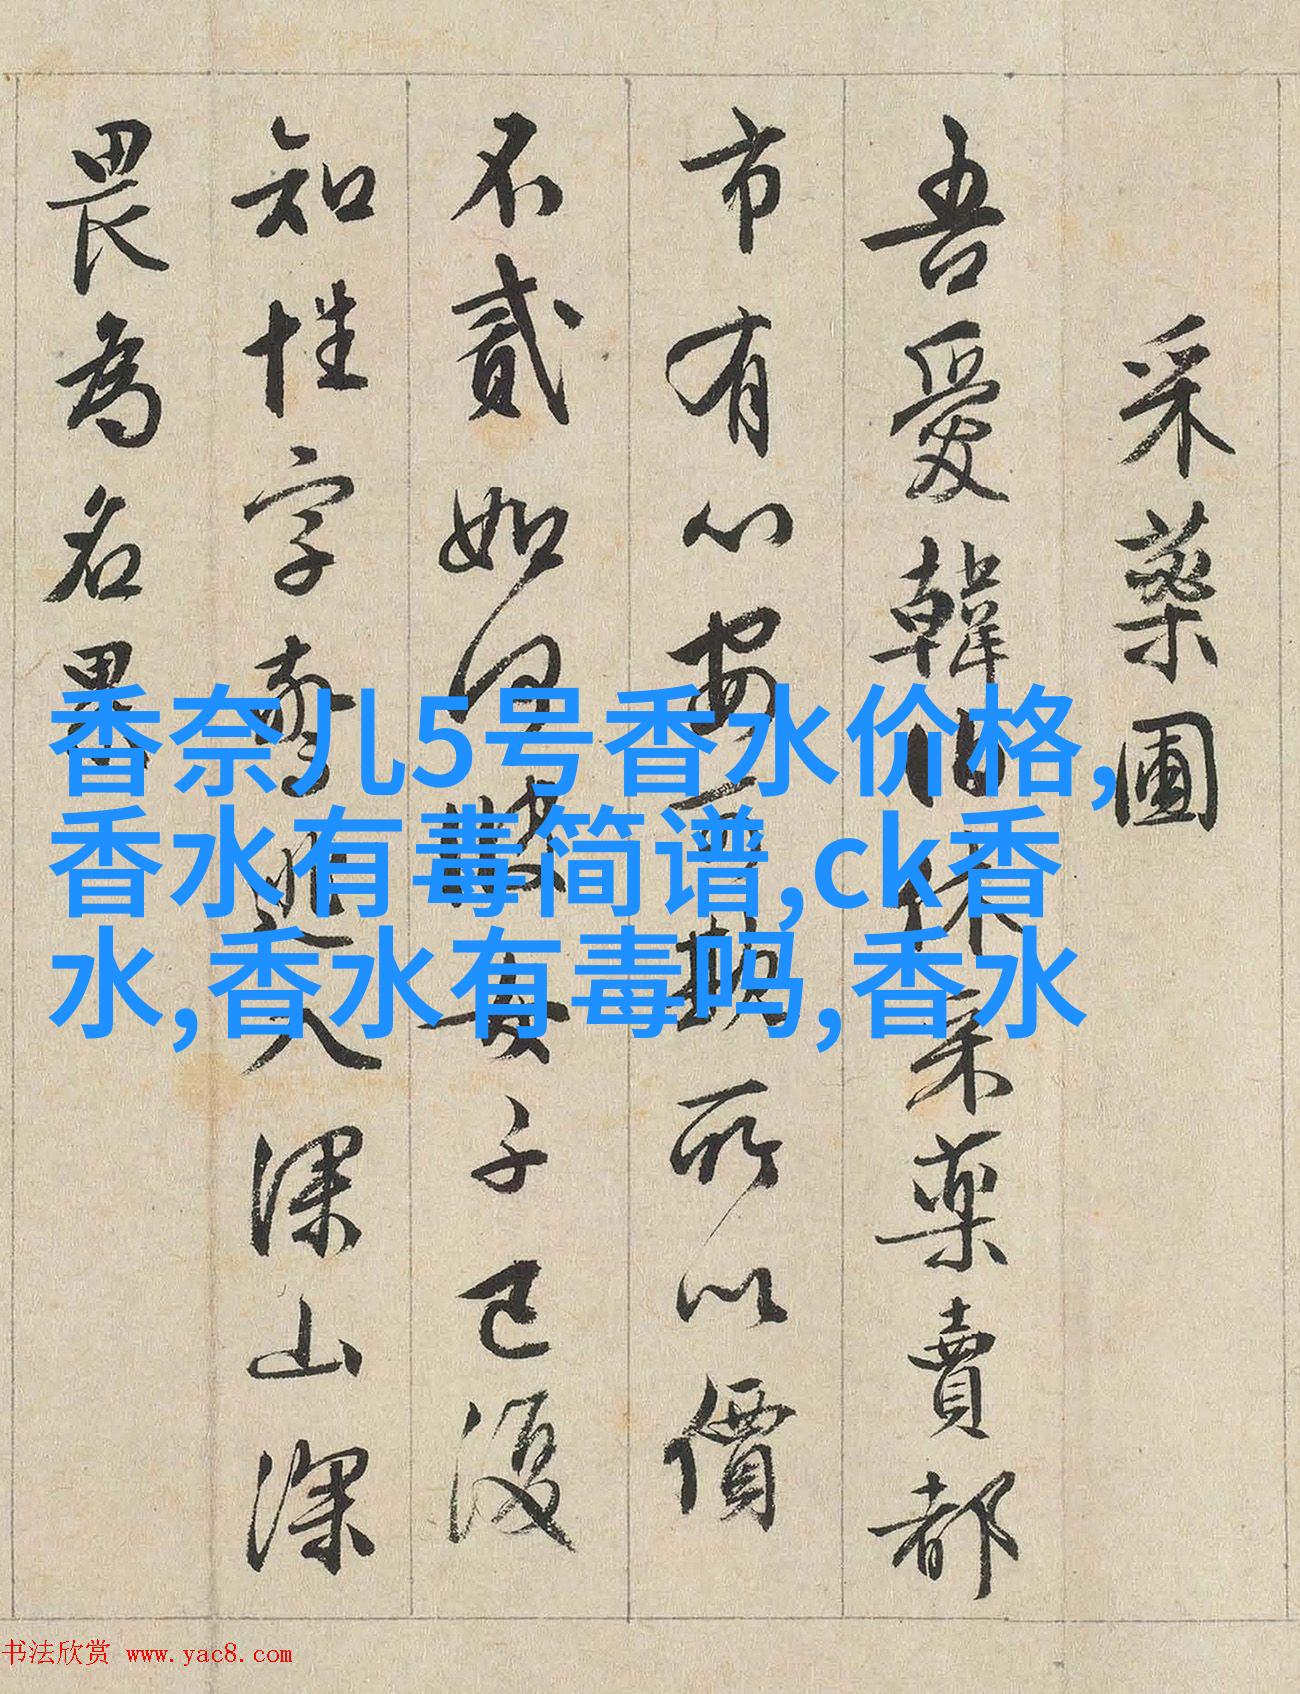 采藥圃
吾愛韓伯休采藥賣都
市有心安可欺所以價
不貳如何彼女子已復
知姓字驚逃入深山深
畏為名累
香奈儿5号香水价格,
香水有毒简谱,ck香
水,香水有毒吗,香水
书法欣赏 www.yac8.com